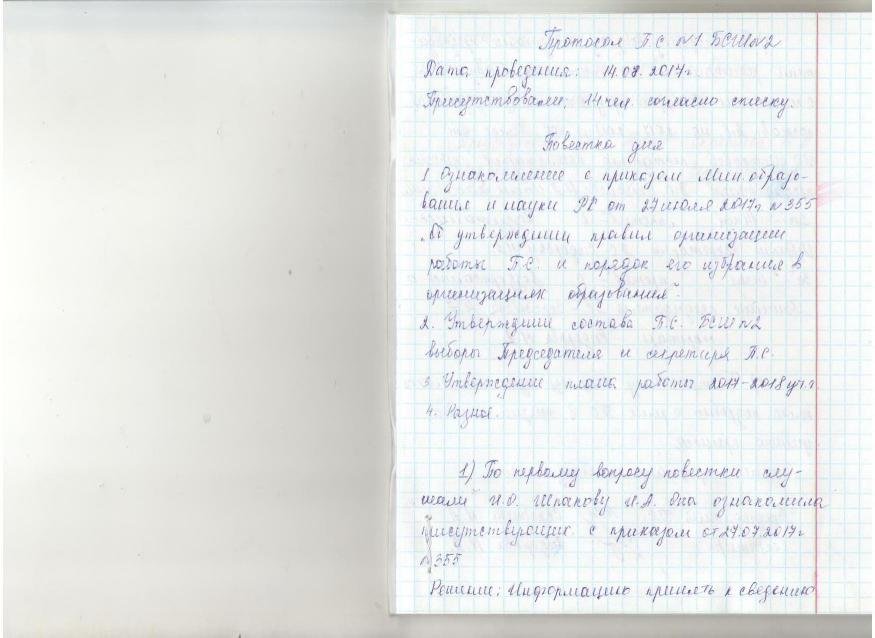 Протокол П.С. №1 БСШ№2
Дата проведения: 14.08.2017г
Присутствовали: 14 чел. согласно списку.
Повестка дня
1 Ознакомление с приказом Мин.образо-
вания и науки РК от 27 июля 2017г. №355
„Об утверждении правил организации
работы П.С. и порядок его избрания в
организациях образования".
2. Утверждение состава П.С. БСШ№2
выборы Председателя и секретаря П.С.
3. Утверждение плана работы 2017-2018 уч.г.
4. Разное.
1) По первому вопросу повестки слу-
шали И.О. Шпакову И.А. Она ознакомила
присутствующих с приказом от 27.07.2017г
№355
Решение: Информацию принять к сведению